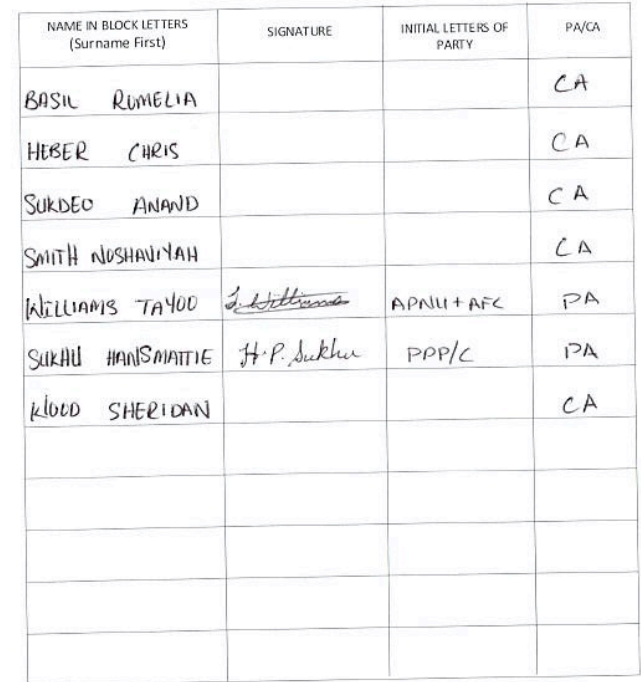 NAME IN BLOCK LETTERS SIGNATURE INITIAL LETTERS OF PA/CA
(Surname First) PARTY
BASIL ROMELIA CA
HEBER CHRIS CA
SUKDEO ANAND CA
SMITH NOSHAVIYAH CA
WILLIAMS TAYOO Williams APNU+AFC PA
SUKHU HANSMATTIE H.P. Sukhu PPP/C PA
SHERIDAN CA